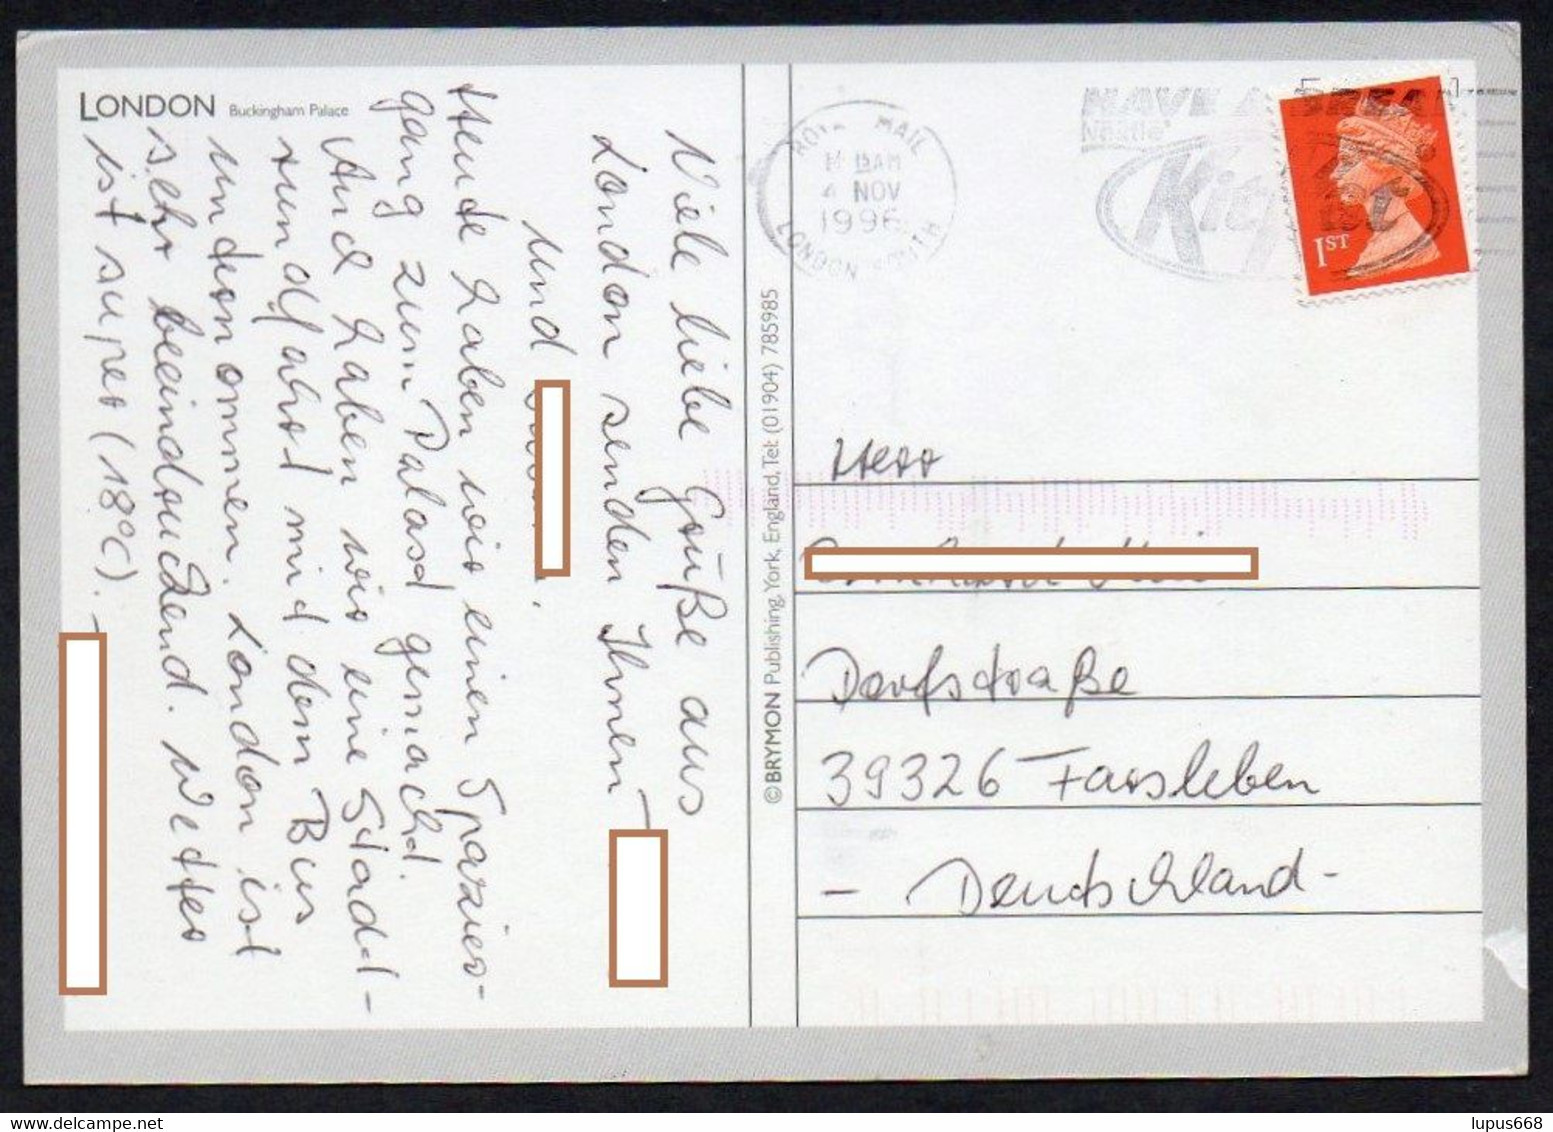 LONDON Buckingham Palace
Viele liebe Grüße aus
London senden Ihnen
und
Heute haben wir einen Spazier-
gang zum Palast gemacht.
Und haben wir eine Stadt-
rundfahrt mit dem Bus
unternommen. London ist
sehr beeindruckend. Wetter
ist super (18°C).
© BRYMON Publishing, York, England, Tel: (01904) 785985
ROYAL MAIL
AM
4 NOV
1996
LONDON SOUTH
HAVE A BREAK
Nestlé
Kit
1ST
Herr
Dorfstraße
39326 Farsleben
- Deutschland -
lupus668